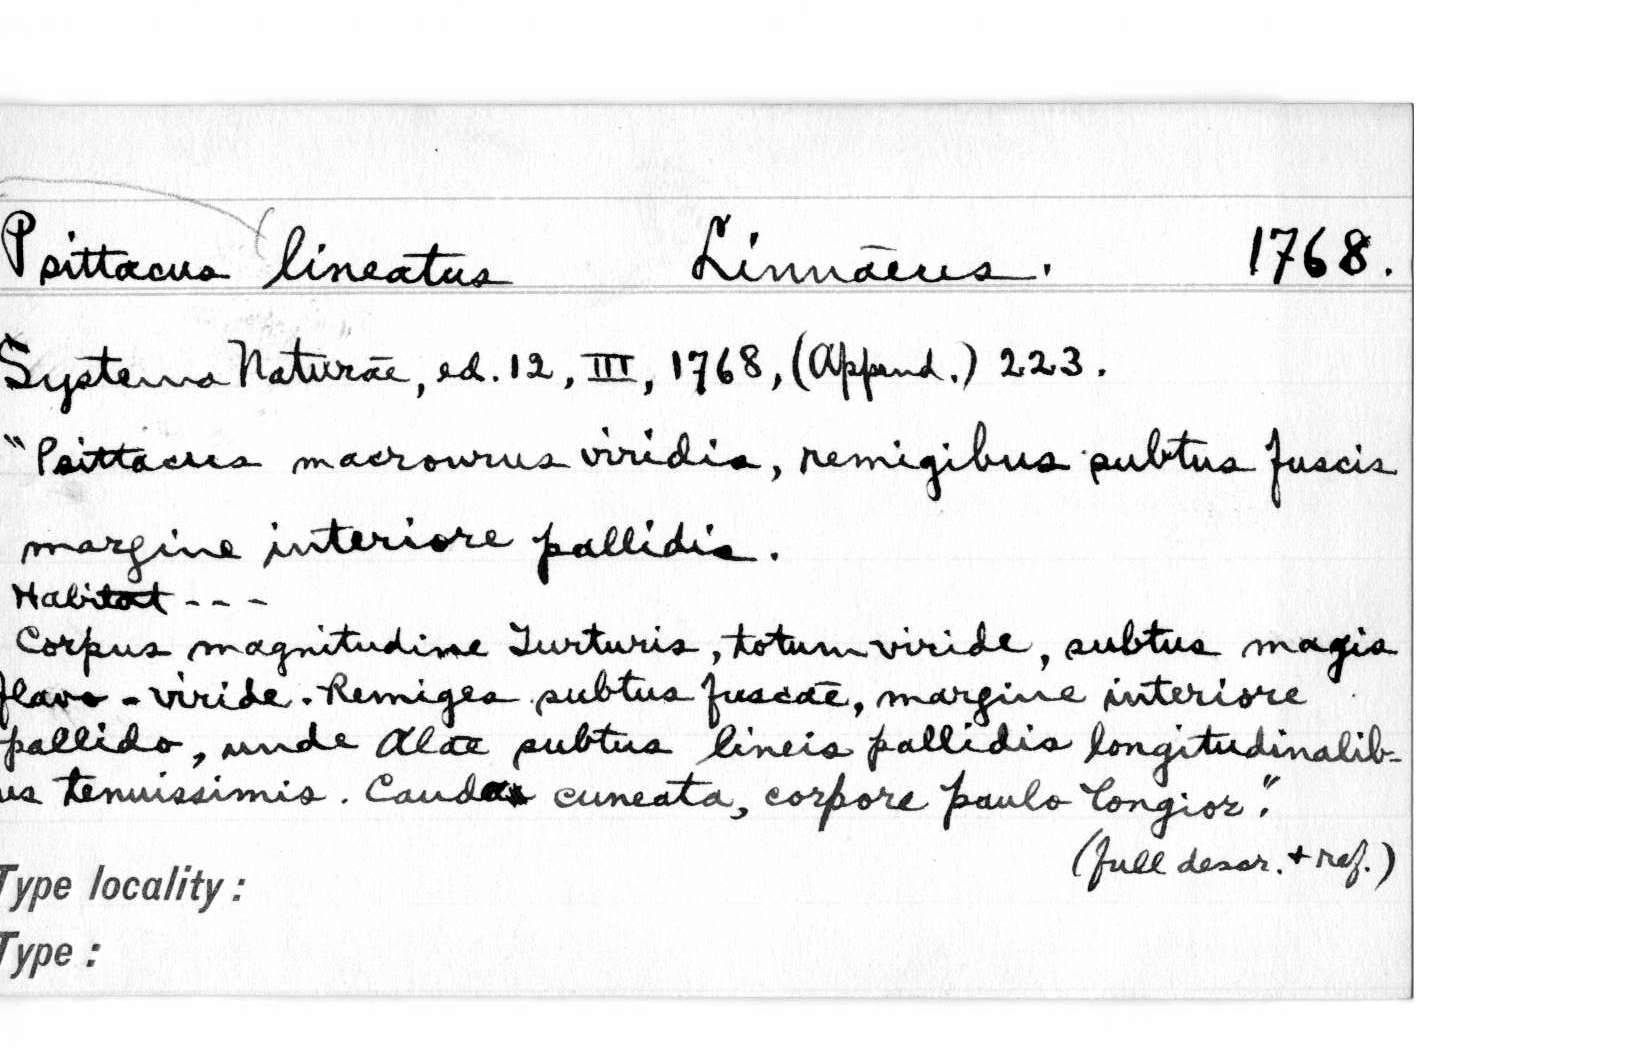 Psittacus lineatus Linnaeus. 1768.
Systema Naturae, ed. 12, III, 1768, (Append.) 223.
"Psittacus macrourus viridis, remigibus subtus fuscis
margine interiore pallidis.
Habitat - - -
Corpus magnitudine Turturis, totum viride, subtus magis
flavo-viride. Remiges subtus fuscae, margine interiore
pallido, unde Alae subtus lineis pallidis longitudinalib-
us tenuissimis. Cauda cuneata, corpore paulo longior."
(full descr. + ref.)
Type locality:
Type: